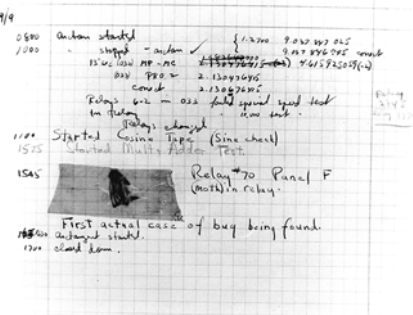 9/9
0800 antan started
1000 " stopped - antan ✓ { 1.2700 9.037 847 025
9.037 846 995 correct
13"uc (032) MP - MC 4.615925059(-2)
(033) PRO 2 2.130476415
correct 2.130676415
Relays 6-2 in 033 failed special speed test
in Relay " 10,000 test.
Relays changed
1100 Started Cosine Tape (Sine check)
1525 Started Mult+Adder Test.
1545 Relay #70 Panel F
(moth) in relay.
First actual case of bug being found.
antangent started.
1700 closed down.